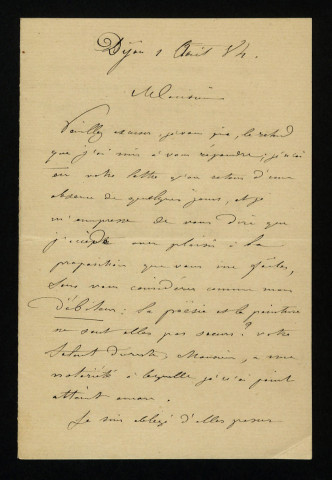 Dijon 1 Août 84.
Monsieur
Veuillez excuser, je vous prie, le retard
que j'ai mis à vous répondre ; je n'ai
eu votre lettre qu'au retour d'une
absence de quelques jours, et je
m'empresse de vous dire que
j'accède avec plaisir à la
proposition que vous me faites,
sans vous considérer comme mon
débiteur : la poésie et la peinture
ne sont elles pas sœurs ? votre
talent Monsieur, a une
notoriété à laquelle je n'ai point
atteint encore.
Je suis obligé d'aller passer